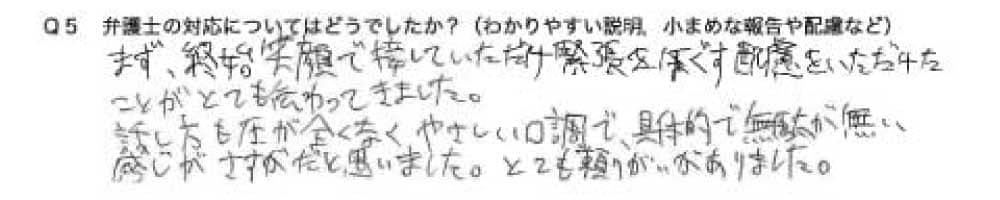 Q5 弁護士の対応についてはどうでしたか？（わかりやすい説明、小まめな報告や配慮など）
まず、終始笑顔で接していただけ緊張をほぐす配慮をいただけた
ことがとても伝わってきました。
話し方も圧が全くなくやさしい口調で、具体的で無駄が無い
感じがさすがだと思いました。とても頼りがいがありました。